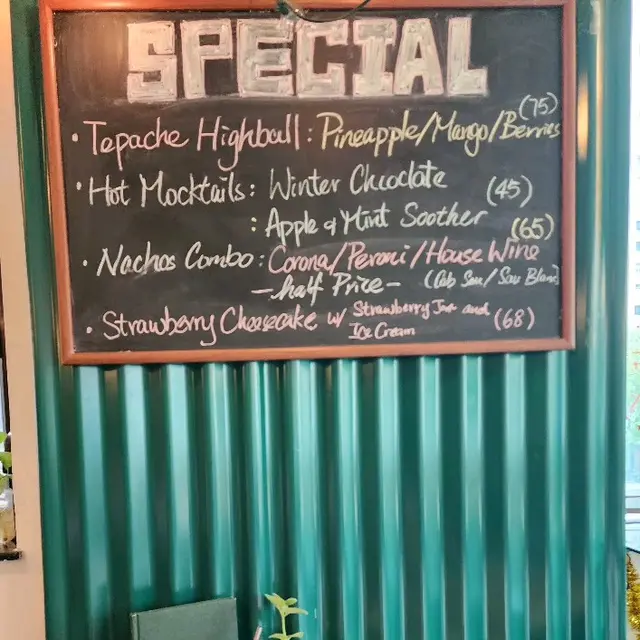 SPECIAL
(75)
· Tepache Highball : Pineapple/Mango/Berries
· Hot Mocktails : Winter Chcoclate (45)
: Apple & Mint Soother (65)
· Nachos Combo : Corona/Peroni/House Wine
- half Price - (Cab Sau/Sau Blanc)
· Strawberry Cheesecake w/ Strawberry Jam and (68)
Ice Cream